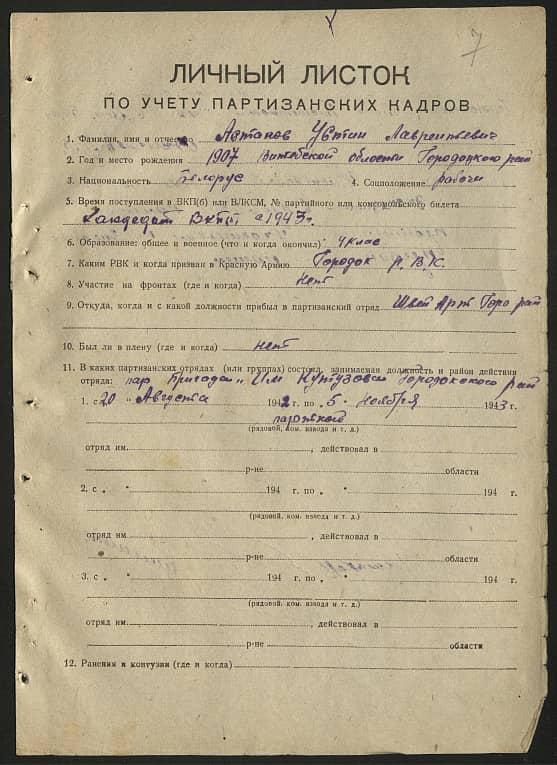 7
ЛИЧНЫЙ ЛИСТОК
ПО УЧЕТУ ПАРТИЗАНСКИХ КАДРОВ
1. Фамилия, имя и отчество Автанов Устин Лаврентьевич
2. Год и место рождения 1907 Витебской области Городоцкого рай
3. Национальность Белорус 4. Соцположение рабочи
5. Время поступления в ВКП(б) или ВЛКСМ, № партийного или комсомольского билета
Кандедат с 1943 г.
6. Образование: общее и военное (что и когда окончил) 4 клас
7. Каким РВК и когда призван в Красную Армию Городок Р.В.К.
8. Участие на фронтах (где и когда) нет
9. Откуда, когда и с какой должности прибыл в партизанский отряд Арт рай
10. Был ли в плену (где и когда) нет
11. В каких партизанских отрядах (или группах) состоял, занимаемая должность и район действия
отряда: пар Бригада „Им Кутузова Городокского рай
1. с 20 „ Августа 1942 г. по 5 „ Ноября 1943 г.
(рядовой, ком. взвода и т. д.)
отряд им. , действовал в
р-не области
2. с „ " 194 г. по „ " 194 г.
(рядовой, ком. взвода и т. д.)
отряд им. , действовал в
р-не области
3. с „ " 194 г. по „ " 194 г.
(рядовой, ком. взвода и т. д.)
отряд им. , действовал в
р-не области
12. Ранения и контузии (где и когда)